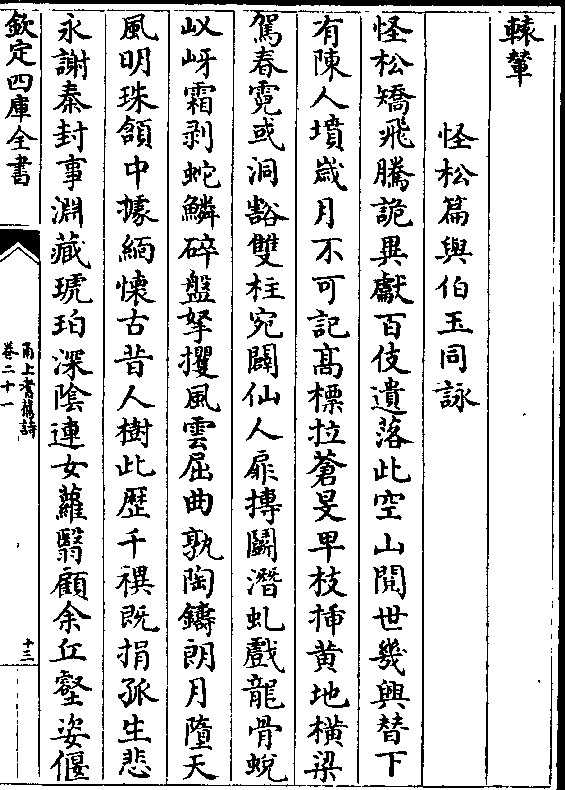 轅輦
怪松篇與伯玉同詠
怪松矯飛騰詭異獻百伎遺落此空山閱世幾興替下
有陳人墳嵗月不可記髙標拉蒼旻卑枝揷黄地橫梁
駕春霓或洞豁雙柱宛闢仙人扉摶鬬潛虬戲龍骨蛻
㠯岈霜剥蛇鱗碎盤拏攫風雲屈曲孰陶鑄朗月墮天
風明珠頷中據緬懷古昔人樹此歴千禩既捐孤生悲
永謝秦封事淵藏琥珀深隂連女蘿翳顧余丘壑姿偃
欽定四庫全書
甬上耆舊詩
卷二十一
十三